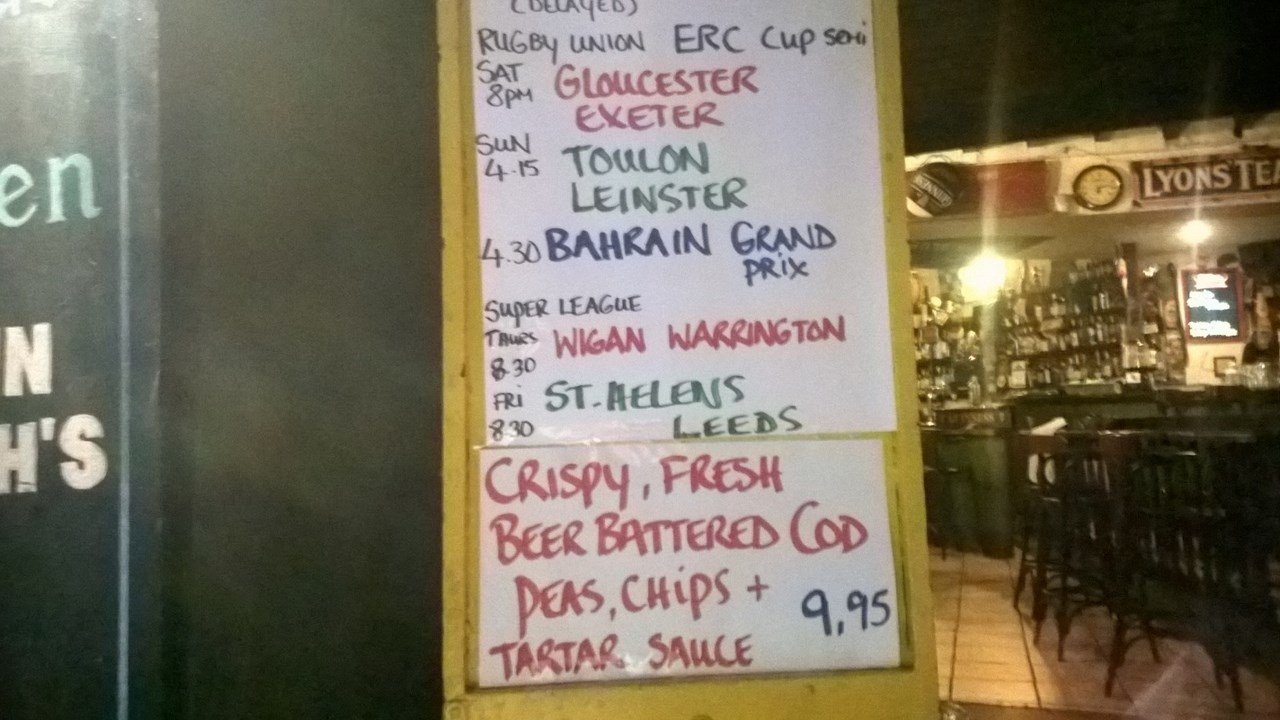 (DELAYED)
RUGBY UNION ERC CUP SEMI
SAT
8PM
GLOUCESTER
EXETER
SUN
4.15
TOULON
LEINSTER
4.30 BAHRAIN GRAND
PRIX
SUPER LEAGUE
THURS
8.30
WIGAN WARRINGTON
FRI
8.30
ST. HELENS
LEEDS
CRISPY, FRESH
BEER BATTERED COD
PEAS, CHIPS +
TARTAR SAUCE
9,95
en
N
H'S
LYONS' TEA